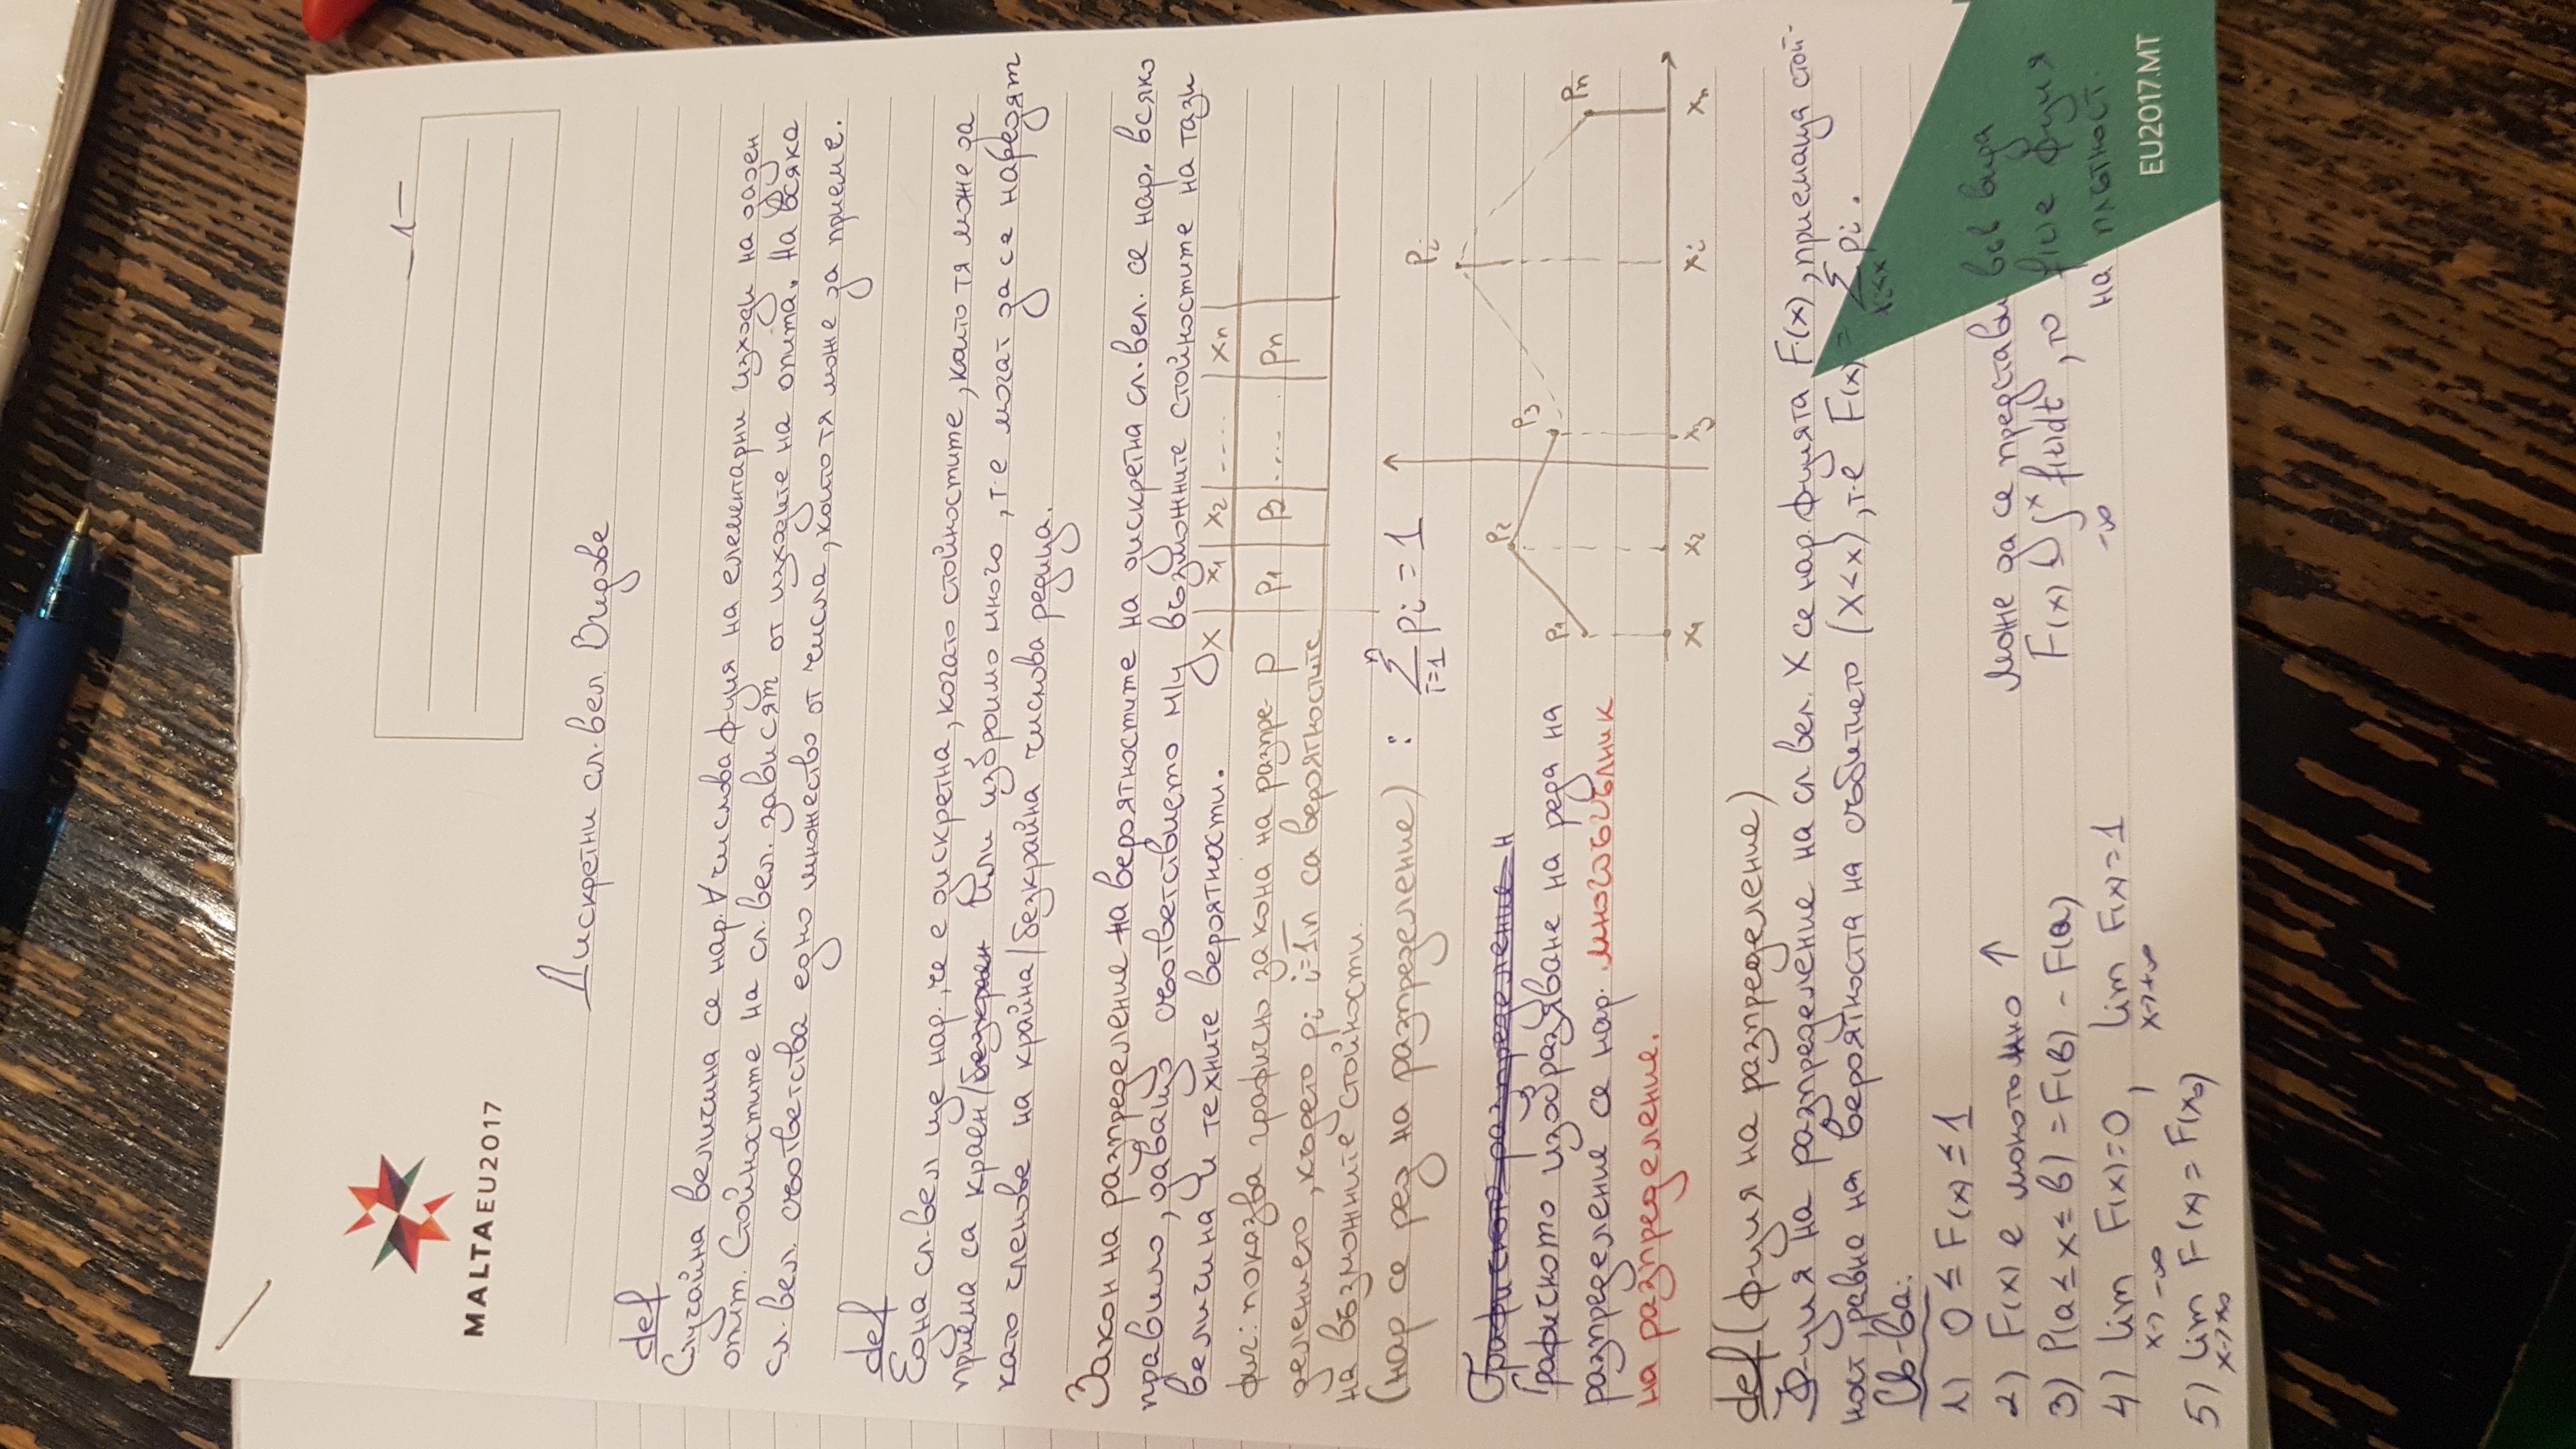 -1-
MALTAEU2017
Дискретни сл. вел. Видове
def
Случайна величина се нар. ∀ числова ф-ция на елементарни изходи на даден
опит. Стойностите на сл. вел. зависят от изходите на опита. На всяка
сл. вел. съответства едно множество от числа, които тя може за приеме.
def
Една сл. вел ще нар., че е дискретна, когато стойностите, които тя може да
приема са краен/безкраен или изброимо много, т.е могат да се наредят
като членове на крайна/безкрайна числова редица.
Закон на разпределение на вероятностите на дискретна сл. вел. се нар. всяко
правило, даващо съответствието м/у възможните стойностите на тази
величина и техните вероятности.
X x₁ x₂ .... xn
фиг: показва графично закона на разпре-
p p₁ p₂ .... pn
делението, където pi i=1,n са вероятностите
на възможните стойности.
(нар. се ред на разпределение) : n∑i=1 pi = 1
Графисното разпределение н
Графисното изобразяване на реда на
разпределение се нар. многоъгълник
на разпределение.
p₁ p₂ p₃ pi pn
x₁ x₂ x₃ xi xn
def (ф-ция на разпределение)
Ф-ция на разпределение на сл. вел. X се нар. ф-цията F(x), приемаща стой-
ност, равна на вероятността на събитието (X<x), т.е F(x) = ∑xi<x pi.
Св-ва:
1) 0 ≤ F(x) ≤ 1
2) F(x) е монотонно ↑
3) P(a ≤ x ≤ b) = F(b) - F(a)
4) lim x→-∞ F(x)=0, lim x→+∞ F(x)=1
5) lim x→x₀ F(x) = F(x₀)
може да се представи във вида
F(x) ∫-∞^x f(t)dt, то f(t) е ф-ция
на плътност.
EU2017.MT